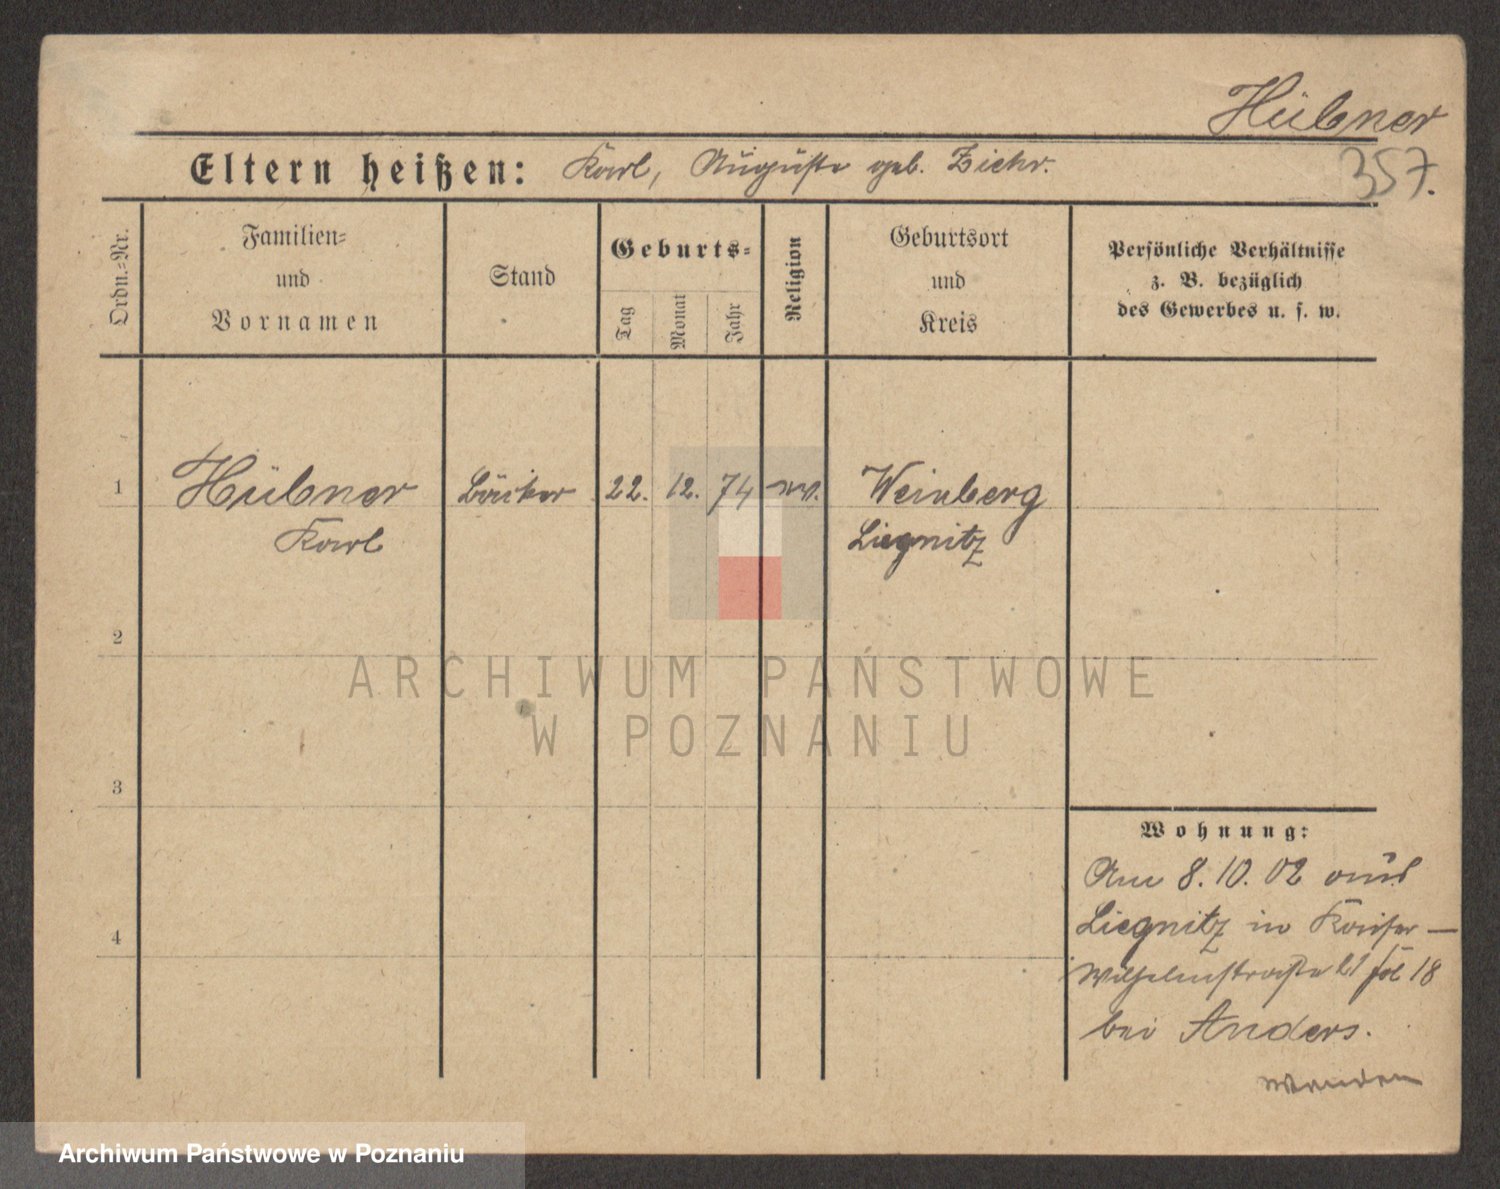 Hübner
Eltern heißen: Karl, Auguste geb.
357.
Ordn.-Nr.
Familien-
und
Vornamen
Stand
Geburts-
Tag
Monat
Jahr
Religion
Geburtsort
und
Kreis
Persönliche Verhältnisse
z. B. bezüglich
des Gewerbes u. s. w.
1 Hübner Bäcker 22. 12. 74 ev. Weinberg
Karl Liegnitz
2
3
4
ARCHIWUM PAŃSTWOWE
W POZNANIU
Wohnung:
Am 8. 10. 02 aus
Liegnitz in Kaiser-
Wilhelmstraße 21 fol 18
bei Anders.
wenden
Archiwum Państwowe w Poznaniu